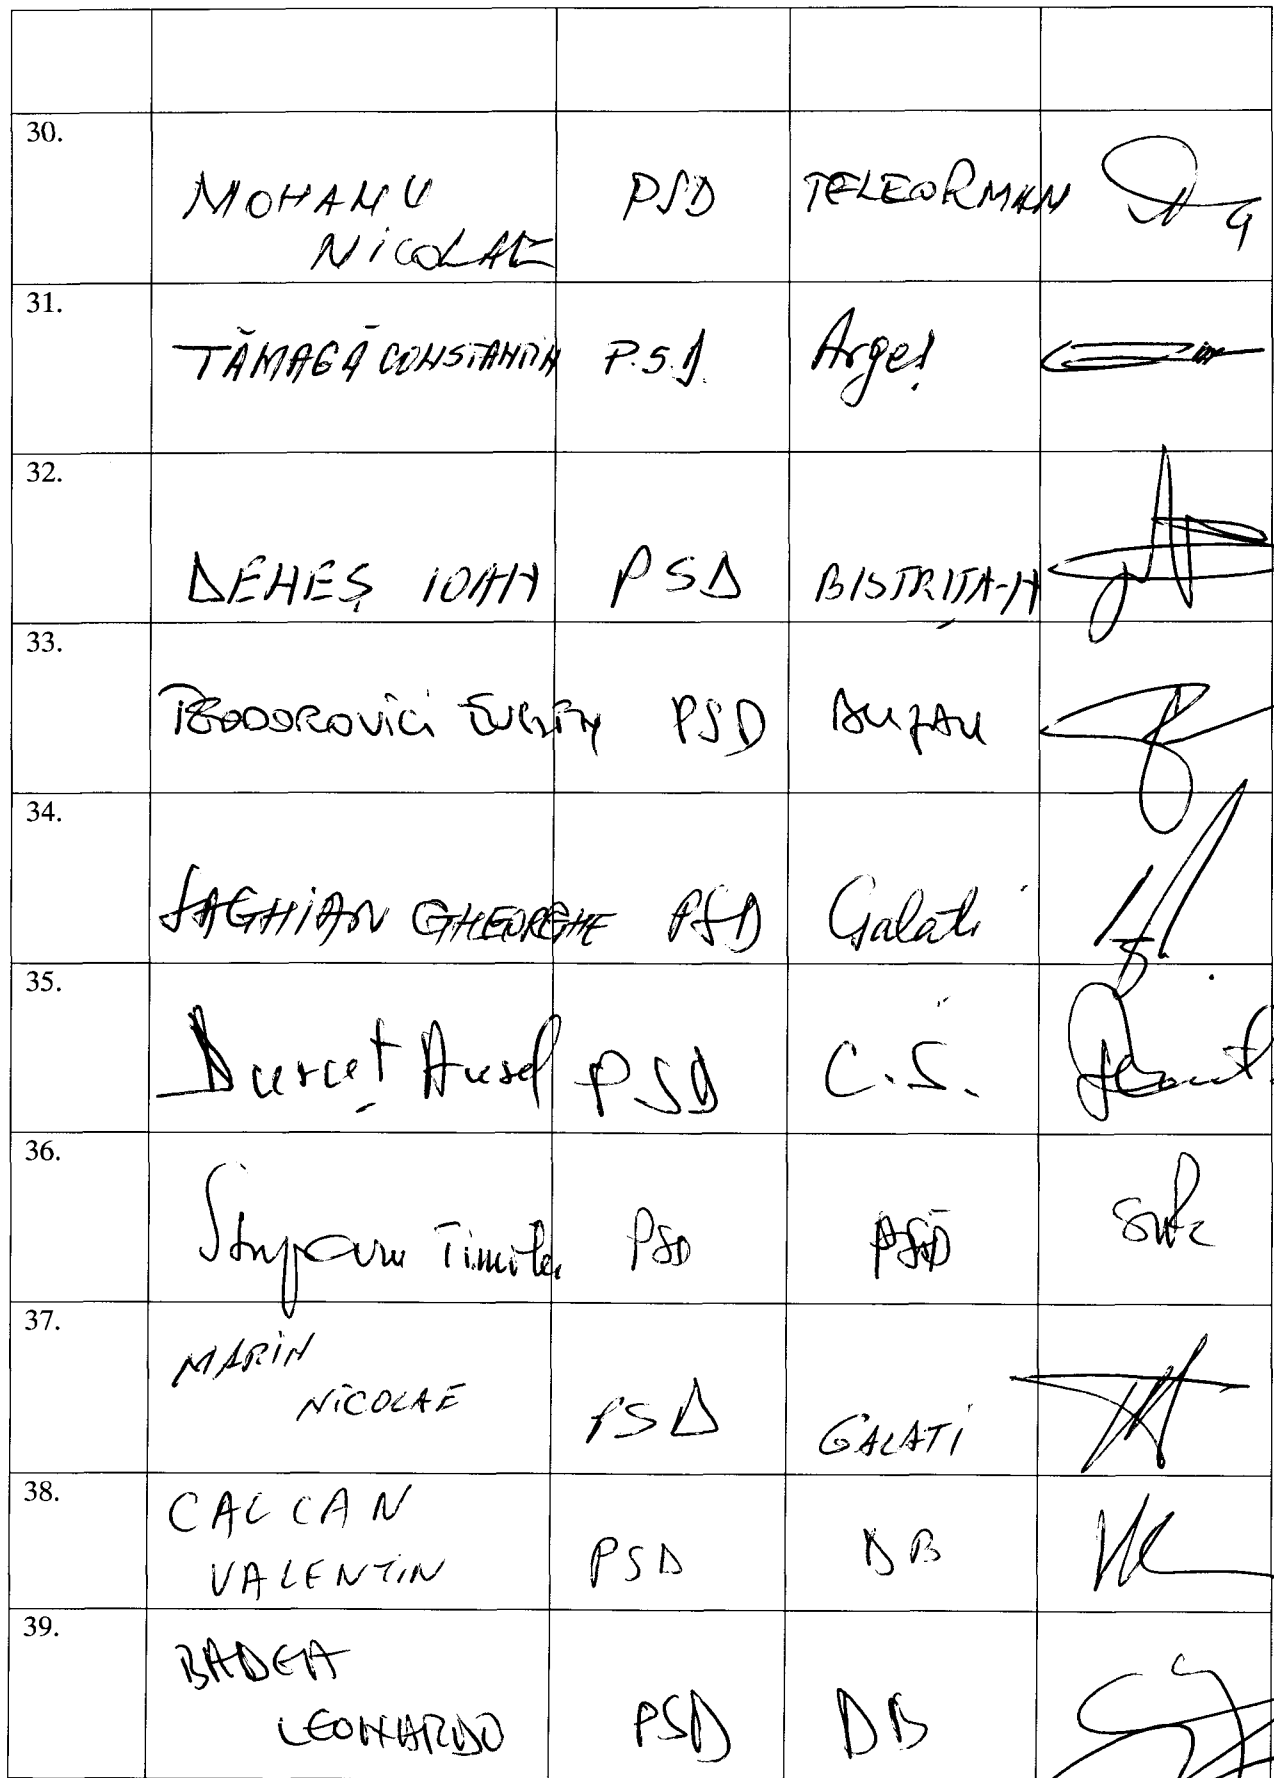 30.
MOHANU PSD TELEORMAN
NICOLAE
31.
TĂMAGĂ CONSTANTIN P.S.D. Argeș
32.
DENEȘ IOAN PSD BISTRIȚA-N
33.
TEODOROVICI EUGEN PSD BUZAU
34.
SAGHIAN GHEORGHE PSD Galati
35.
Burceț Aurel PSD C.S.
36.
Stuparu Timotei PSD PSD
37.
MARIN
NICOLAE PSD GALATI
38.
CALCAN
VALENTIN PSD DB
39.
BADEA
LEONARDO PSD DB